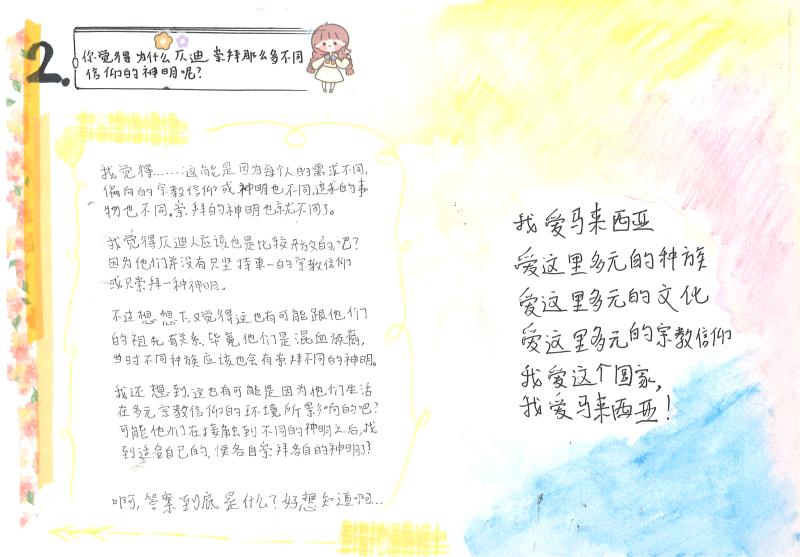 2.
你觉得为什么仄迪崇拜那么多不同
信仰的神明呢?
我觉得......这可能是因为每个人的需求不同,
偏向的宗教信仰或神明也不同,追求的事
物也不同,崇拜的神明也就不同了。
我觉得仄迪人应该也是比较开放的吧?
因为他们并没有只坚持单一的宗教信仰
或只崇拜一种神明。
不过想想下,又觉得这也有可能跟他们
的祖先有关系,毕竟他们是混血族裔,
当时不同种族应该也会有崇拜不同的神明。
我还想到,这也有可能是因为他们生活
在多元宗教信仰的环境所影响的吧?
可能他们在接触到不同的神明之后,找
到适合自己的,便各自崇拜各自的神明了?
啊啊,答案到底是什么?好想知道啊...
我爱马来西亚
爱这里多元的种族
爱这里多元的文化
爱这里多元的宗教信仰
我爱这个国家,
我爱马来西亚!